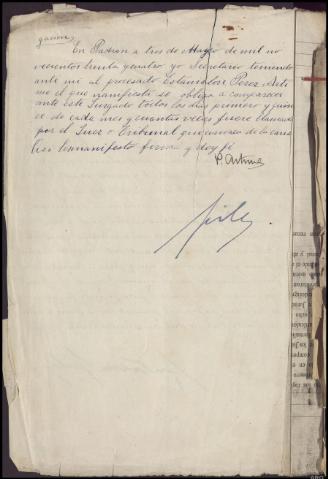 En Padrón a tres de Mayo de mil no
vecientos treinta y cuatro yo Secretario teniendo
ante mi al procesado Estanislao Perez Arti
me el que manifestó se obliga a comparecer
ante este Juzgado todos los dias primero y quin
ce de cada mes y cuantas veces fuere llamado
por el Juez o Tribunal que conozca de la causa
manifesto firma y doy fé
P. Artime